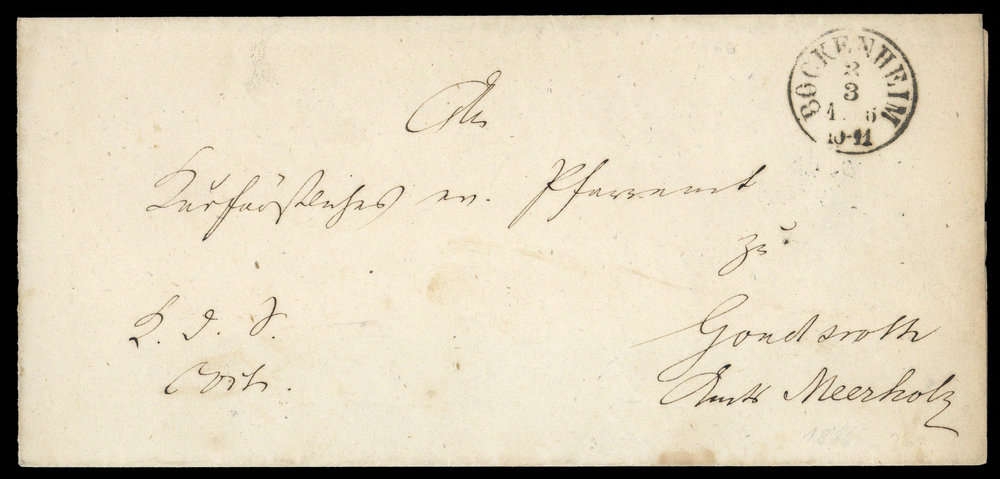 BOCKENHEIM
2
3
10-11
An
Kurfürstliches ev. Pfarramt
zu
K. d. S.
Gondsroth
Amts Meerholz